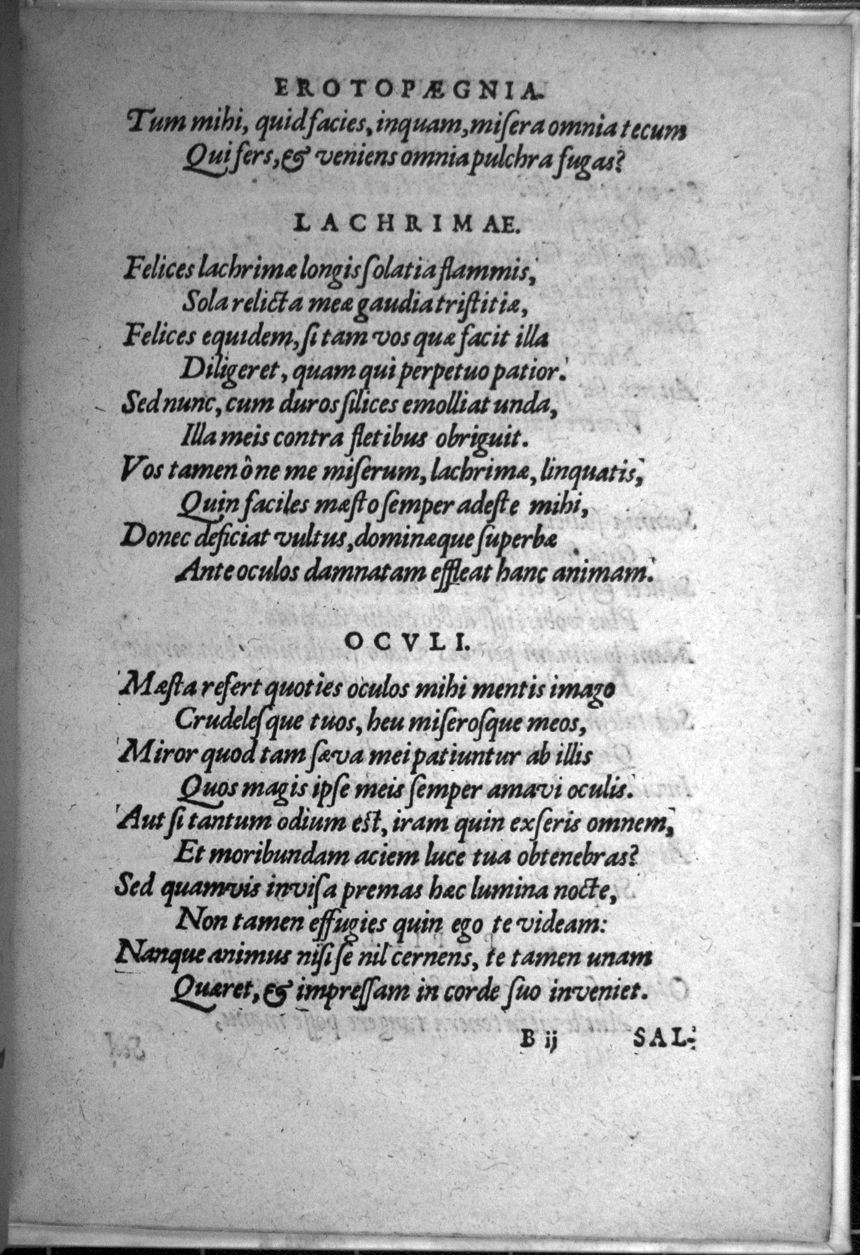 EROTOPÆGNIA.
Tum mihi, quid facies, inquam, miſera omnia tecum
Qui fers, & veniens omnia pulchra fugas?
LACHRIMAE.
Felices lachrimæ longis ſolatia flammis,
Sola relicta meæ gaudia triſtitiæ,
Felices equidem, ſi tam vos quæ facit illa
Diligeret, quam qui perpetuo patior.
Sed nunc, cum duros ſilices emolliat unda,
Illa meis contra fletibus obriguit.
Vos tamen ô ne me miſerum, lachrimæ, linquatis,
Quin faciles mæſto ſemper adeſte mihi,
Donec deficiat vultus, dominæque ſuperbæ
Ante oculos damnatam effleat hanc animam.
OCVLI.
Mæſta refert quoties oculos mihi mentis imago
Crudeleſque tuos, heu miſeroſque meos,
Miror quod tam ſæva mei patiuntur ab illis
Quos magis ipſe meis ſemper amavi oculis.
Aut ſi tantum odium eſt, iram quin exſeris omnem,
Et moribundam aciem luce tua obtenebras?
Sed quamvis inviſa premas hæc lumina nocte,
Non tamen effugies quin ego te videam:
Nanque animus niſi ſe nil cernens, te tamen unam
Quæret, & impreſſam in corde ſuo inveniet.
B ij SAL-